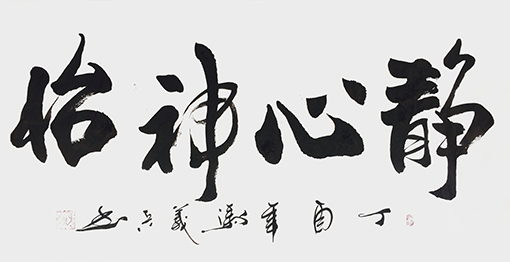 静心神怡
丁酉年 义兵书